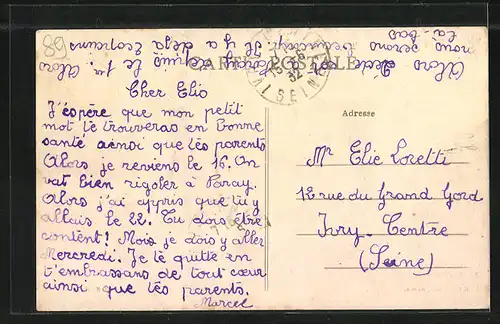 89
CARTE POSTALE
Adresse
Cher Elio
J'éspère que mon petit
mot te trouveras en bonne
santé ainsi que tes parents
Alors je reviens le 16. On
vat bien rigoler à Paray.
Alors j'ai appris que tu y
allais le 22. Tu dois être
content! Mois je dois y aller
Mercredi. Je te quitte en
t'embrassans de tout cœur
ainsi que tes parents.
Marcel
Mr Elie Loretti
12 rue du Grand Gord
Ivry-Centre
(Seine)
nous serons
la-bas